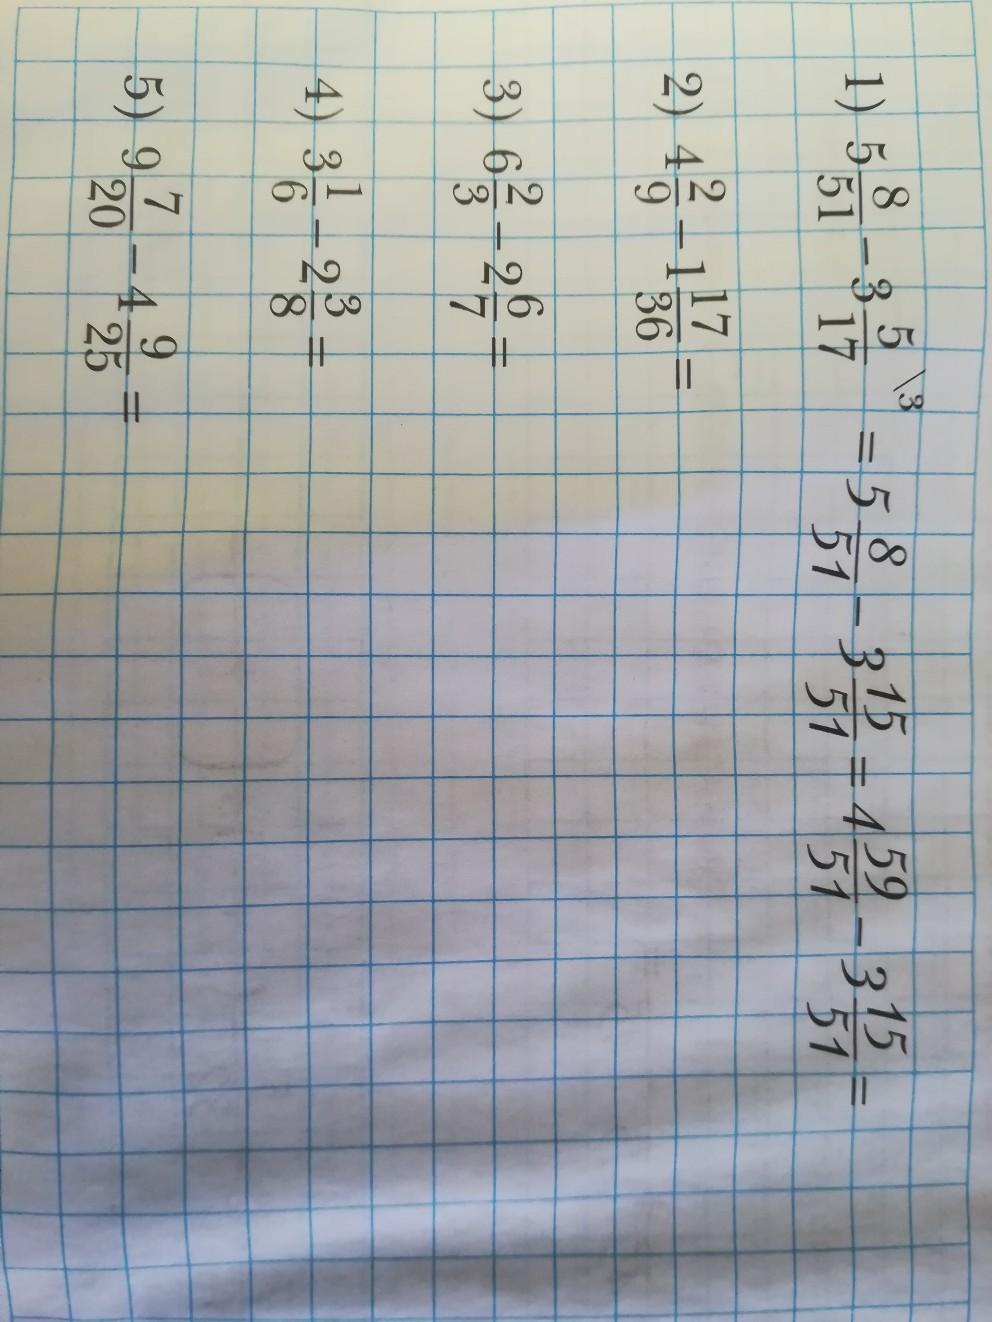 1) 5 8/51 − 3 5/17 \3 = 5 8/51 − 3 15/51 = 4 59/51 − 3 15/51 =
2) 4 2/9 − 1 17/36 =
3) 6 2/3 − 2 6/7 =
4) 3 1/6 − 2 3/8 =
5) 9 7/20 − 4 9/25 =